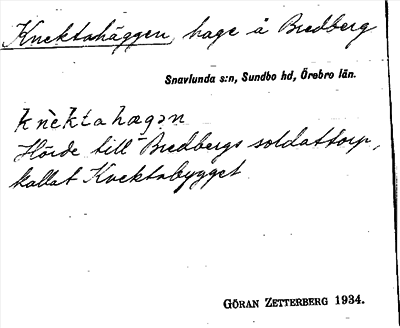 Knektahäggen, hage å Bredberg
Snavlunda s:n, Sundbo hd, Örebro län.
knèktahægən
Hörde till Bredbergs soldattorp,
kallat Knektabygget.
GÖRAN ZETTERBERG 1934.